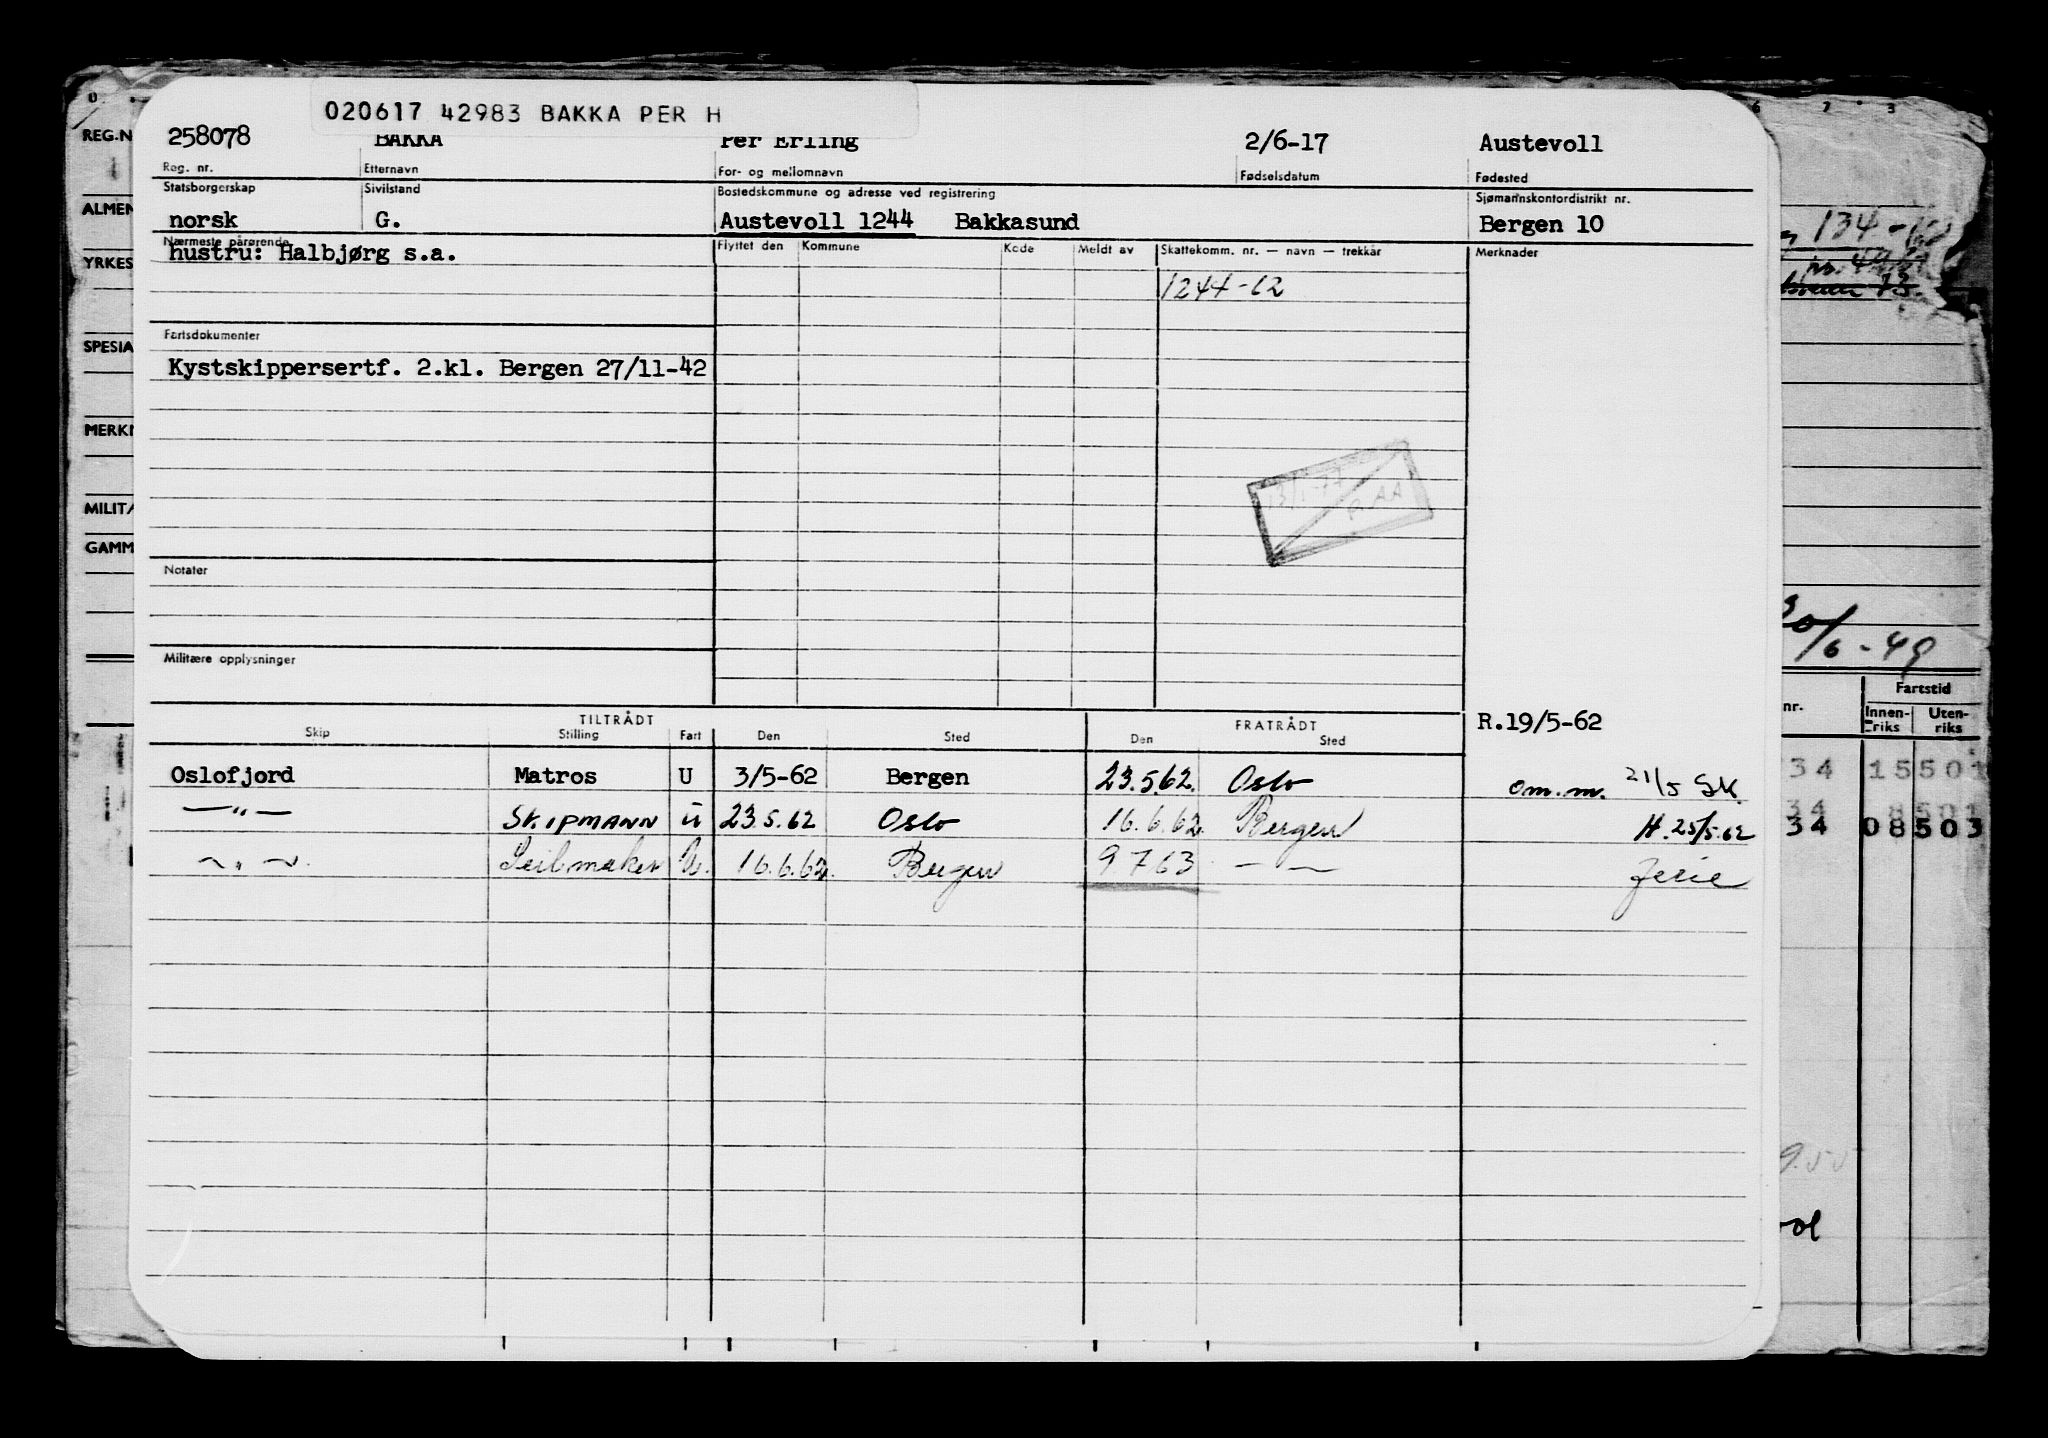 020617 42983 BAKKA PER H
258078 BAKKA Per Erling 2/6-17 Austevoll
Reg. nr. Etternavn For- og mellomnavn Fødselsdatum Fødested
Statsborgerskap Sivilstand Bostedskommune og adresse ved registrering Sjømannskontordistrikt nr.
norsk G. Austevoll 1244 Bakkasund Bergen 10
Nærmeste pårørende Flyttet den Kommune Kode Meldt av Skattekomm. nr. — navn — trekkår Merknader
hustru: Halbjørg s.a.
1244-62
Fartsdokumenter
Kystskippersertf. 2.kl. Bergen 27/11-42
13/1-77
R.AA
Notater
Militære opplysninger
TILTRÅDT FRATRÅDT R.19/5-62
Skip Stilling Fart Den Sted Den Sted
Oslofjord Matros U 3/5-62 Bergen 23.5.62. Oslo om.m. 21/5 SK.
—"— SKIPMANN U 23.5.62 Oslo 16.6.62 Bergen H.25/5.62
—"— Seilmaker U. 16.6.62. Bergen 9.7.63 — — ferie
REG.N
ALMEN
YRKES
SPESIA
MERKN
MILITÆ
GAMM
6 2 3
134-
73.
30/6-49
nr. Fartstid
Innen-riks Uten-riks
34 15501
34 8501
34 08503